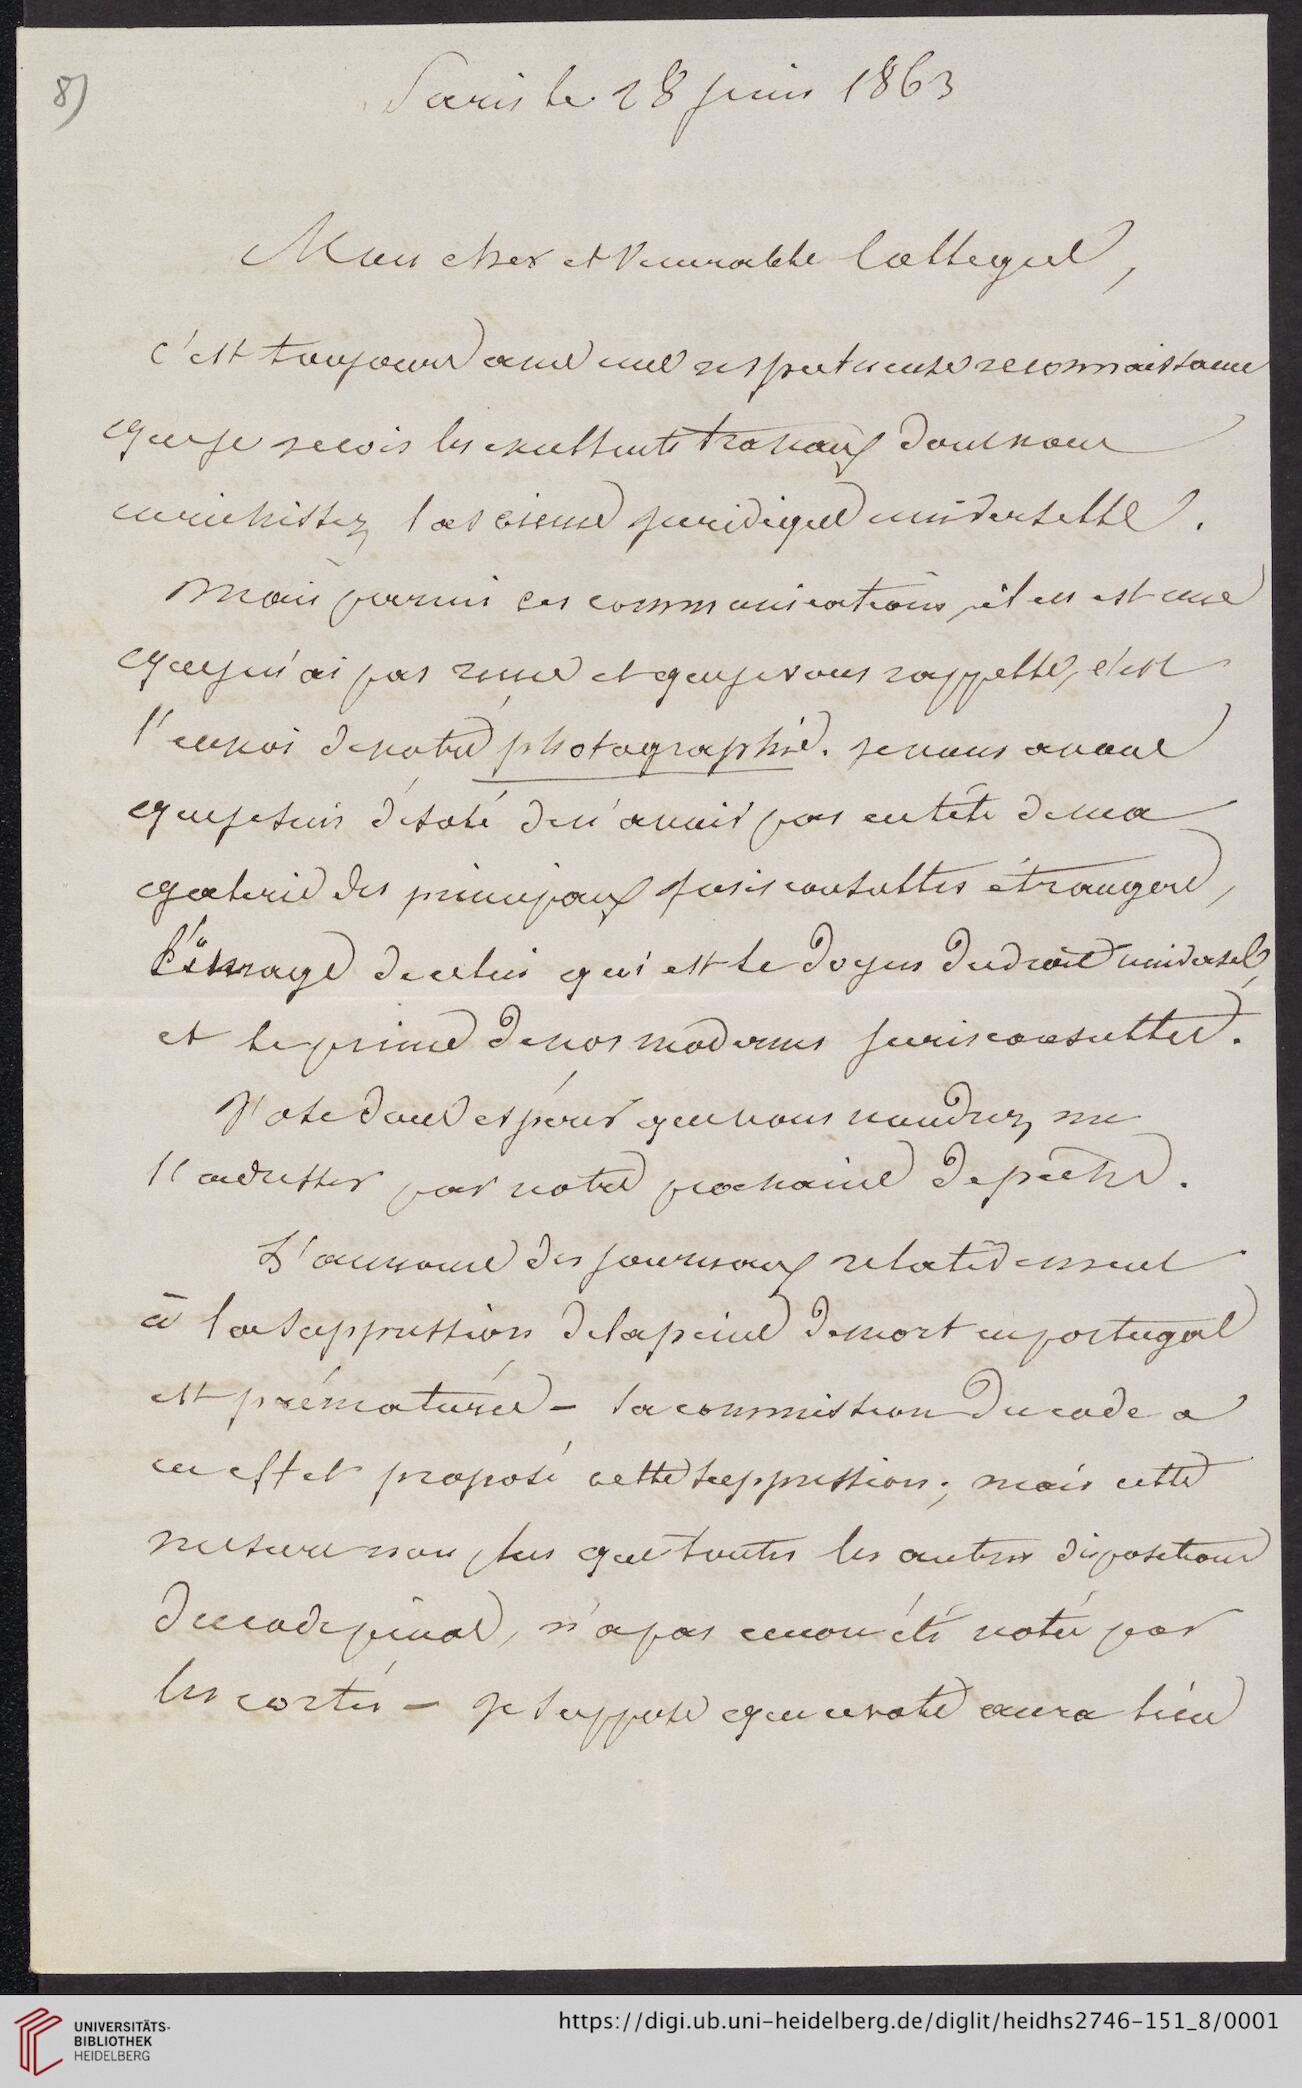 8)
Paris le 28 juin 1863
Mon cher et venerable Collegue,
c'est toujours avec une respectueuse reconnaissance
que je recois les excellents travaux dont vous
enrichissez la science juridique universelle.
Mais parmi ces communications, il en est une
que je n'ai pas reçue et que je vous rappelle, c'est
l'envoi de votre photographie. je vous avoue
que je suis désolé de n'avoir pas en tête de ma
galerie des principaux jurisconsultes étrangers,
l'image de celui qui est le doyen du droit universel,
et le prince de nos modernes jurisconsultes.
J'ose donc espérer que vous voudrez me
l'adresser par votre prochaine depêche.
L'annonce des journaux relativement
à la suppression de la peine de mort en portugal
est prématurée - la commission du code a
en effet proposé cette suppression; mais cette
mesure non plus que toutes les autres dispositions
du code pénal, n'a pas encore été votée par
les cortés - je suppose que ce vote aura lieu
UNIVERSITÄTS-
BIBLIOTHEK
HEIDELBERG
https://digi.ub.uni-heidelberg.de/diglit/heidhs2746-151_8/0001